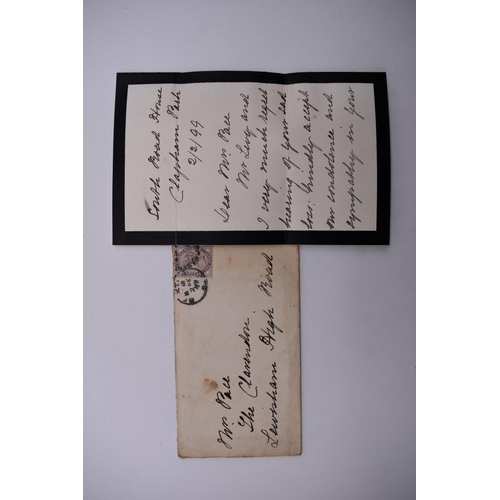 South Road House
Clapham Park
2/2/99
Dear Mrs Pace
Mr Levy and
I very much regret
hearing of your sad
loss. Kindly accept
our condolence and
sympathy in your
Mrs Pace
The Clarendon
Lewisham High Road